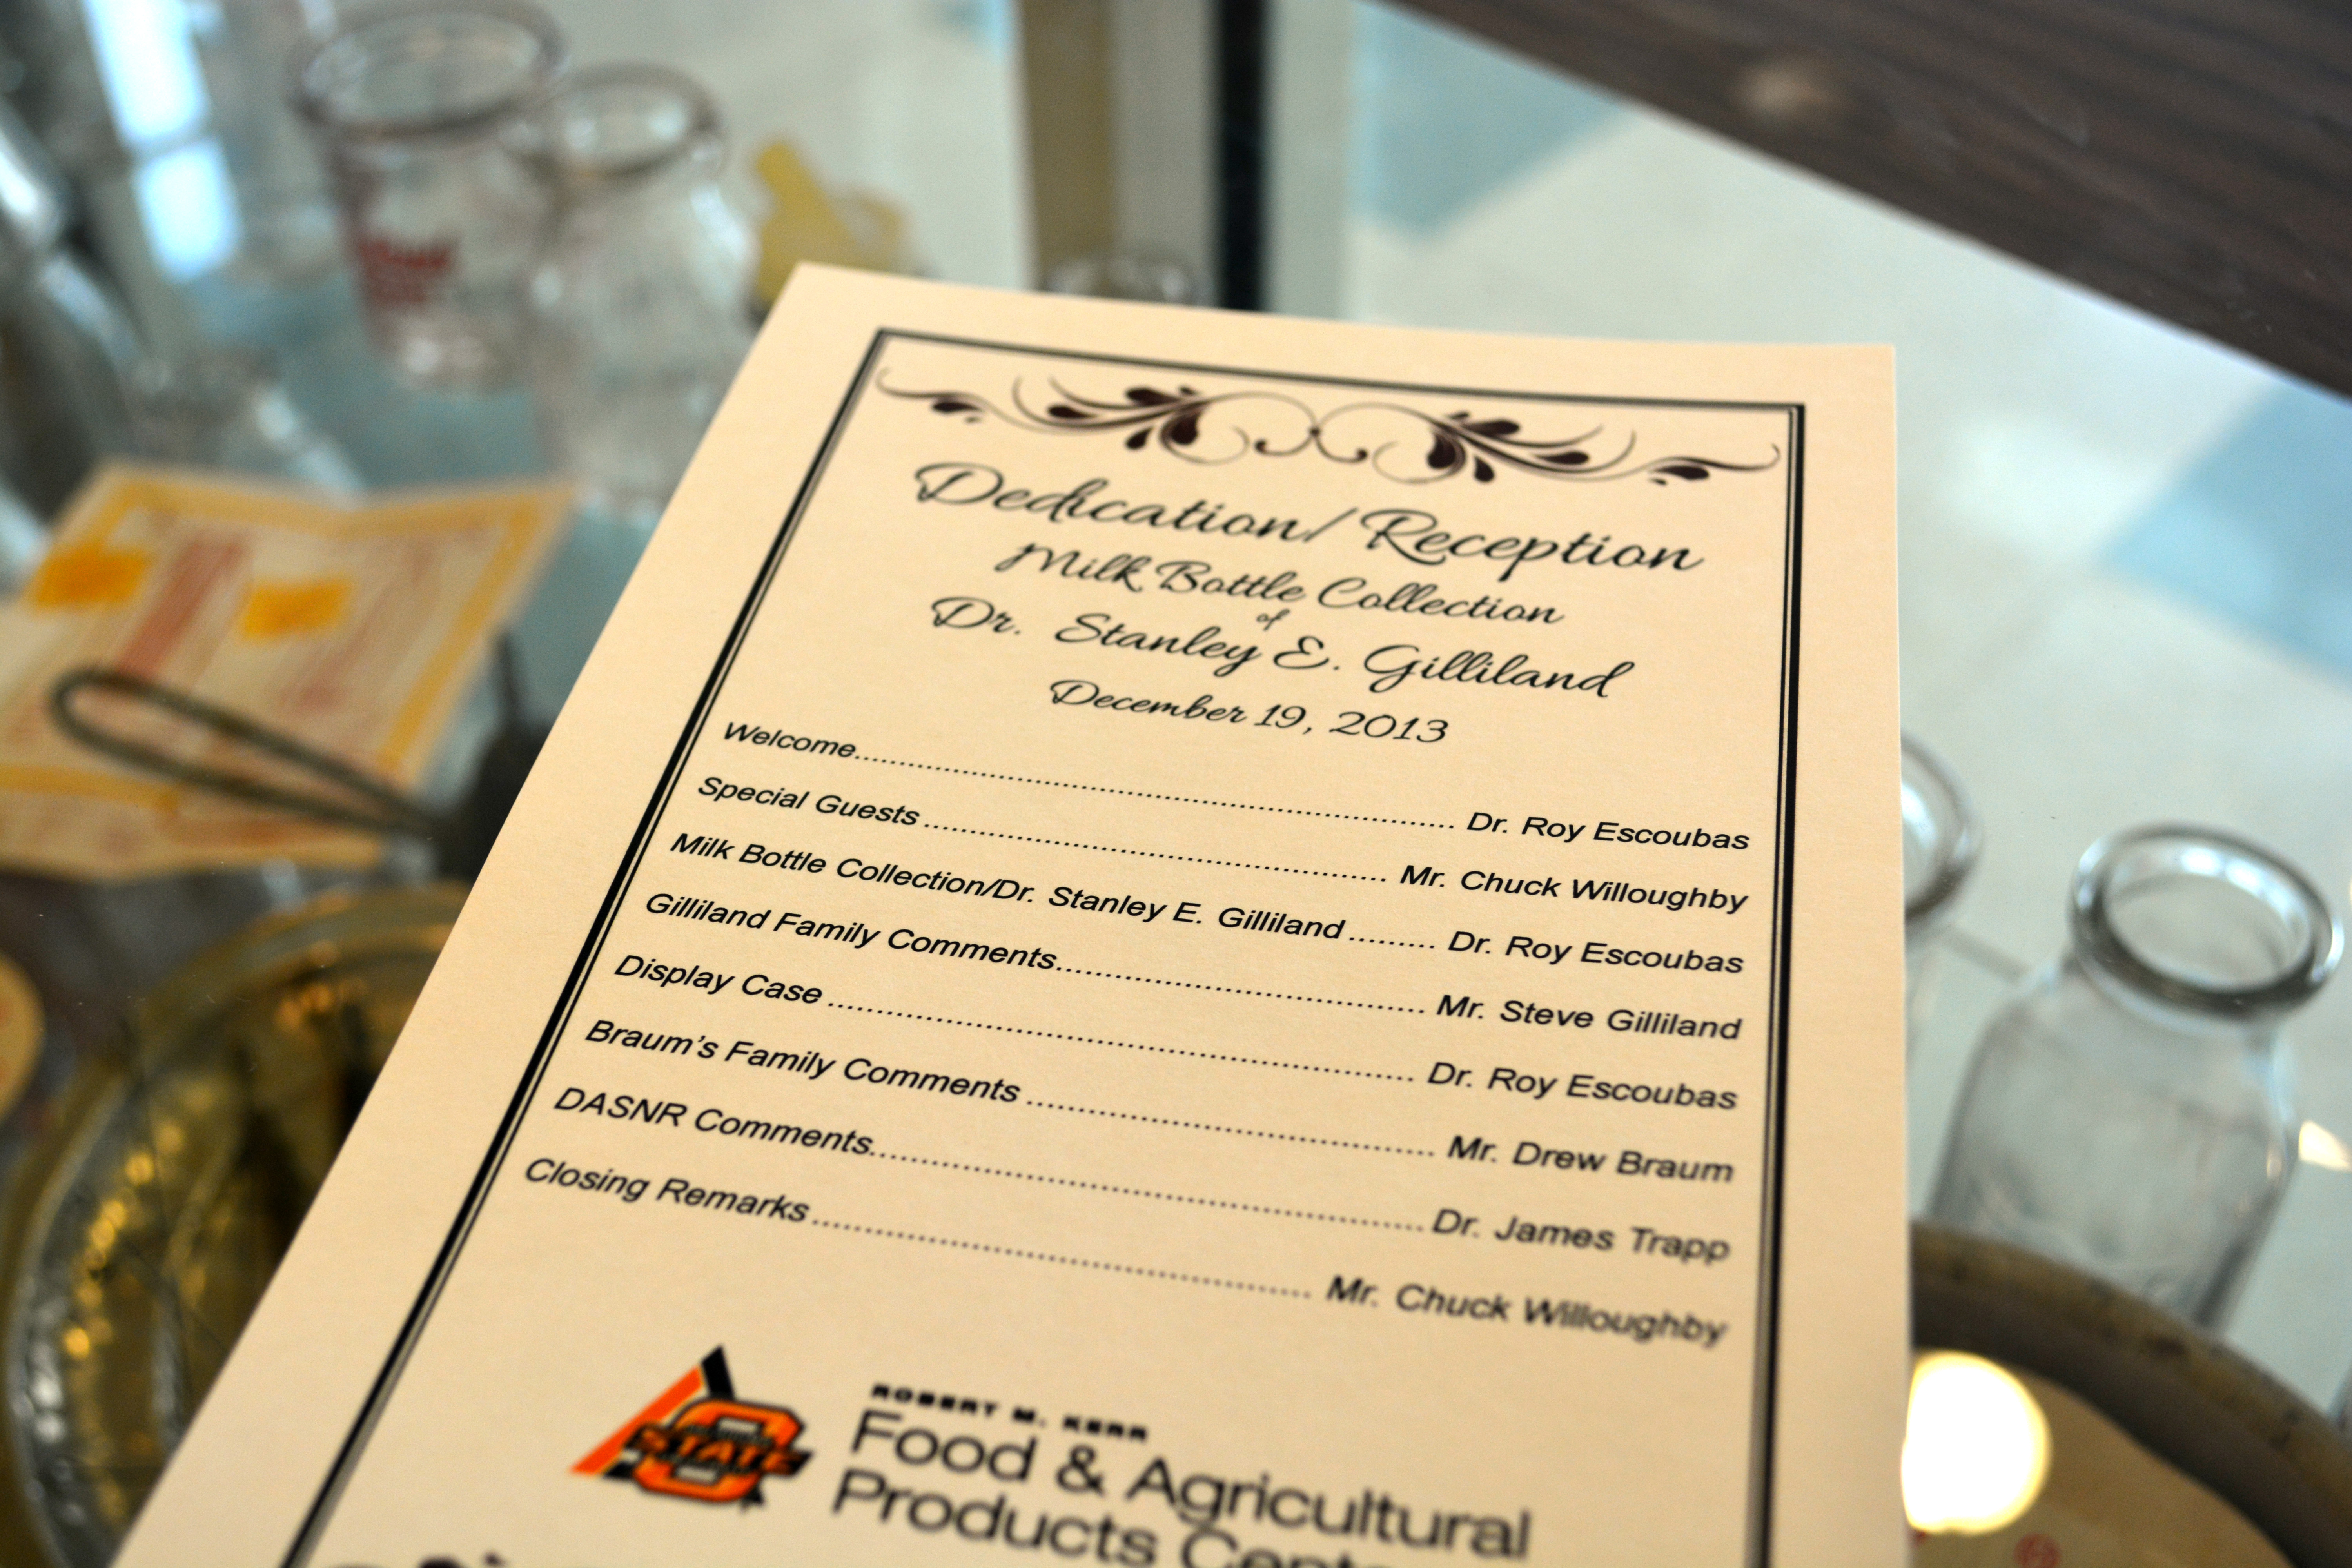 Dedication/Reception
Milk Bottle Collection
of
Dr. Stanley E. Gilliland
December 19, 2013
Welcome........ Dr. Roy Escoubas
Special Guests........ Mr. Chuck Willoughby
Milk Bottle Collection/Dr. Stanley E. Gilliland......... Dr. Roy Escoubas
Gilliland Family Comments........ Mr. Steve Gilliland
Display Case........ Dr. Roy Escoubas
Braum's Family Comments........ Mr. Drew Braum
DASNR Comments........ Dr. James Trapp
Closing Remarks........ Mr. Chuck Willoughby
STATE
ROBERT M. KERR
Food & Agricultural
Products